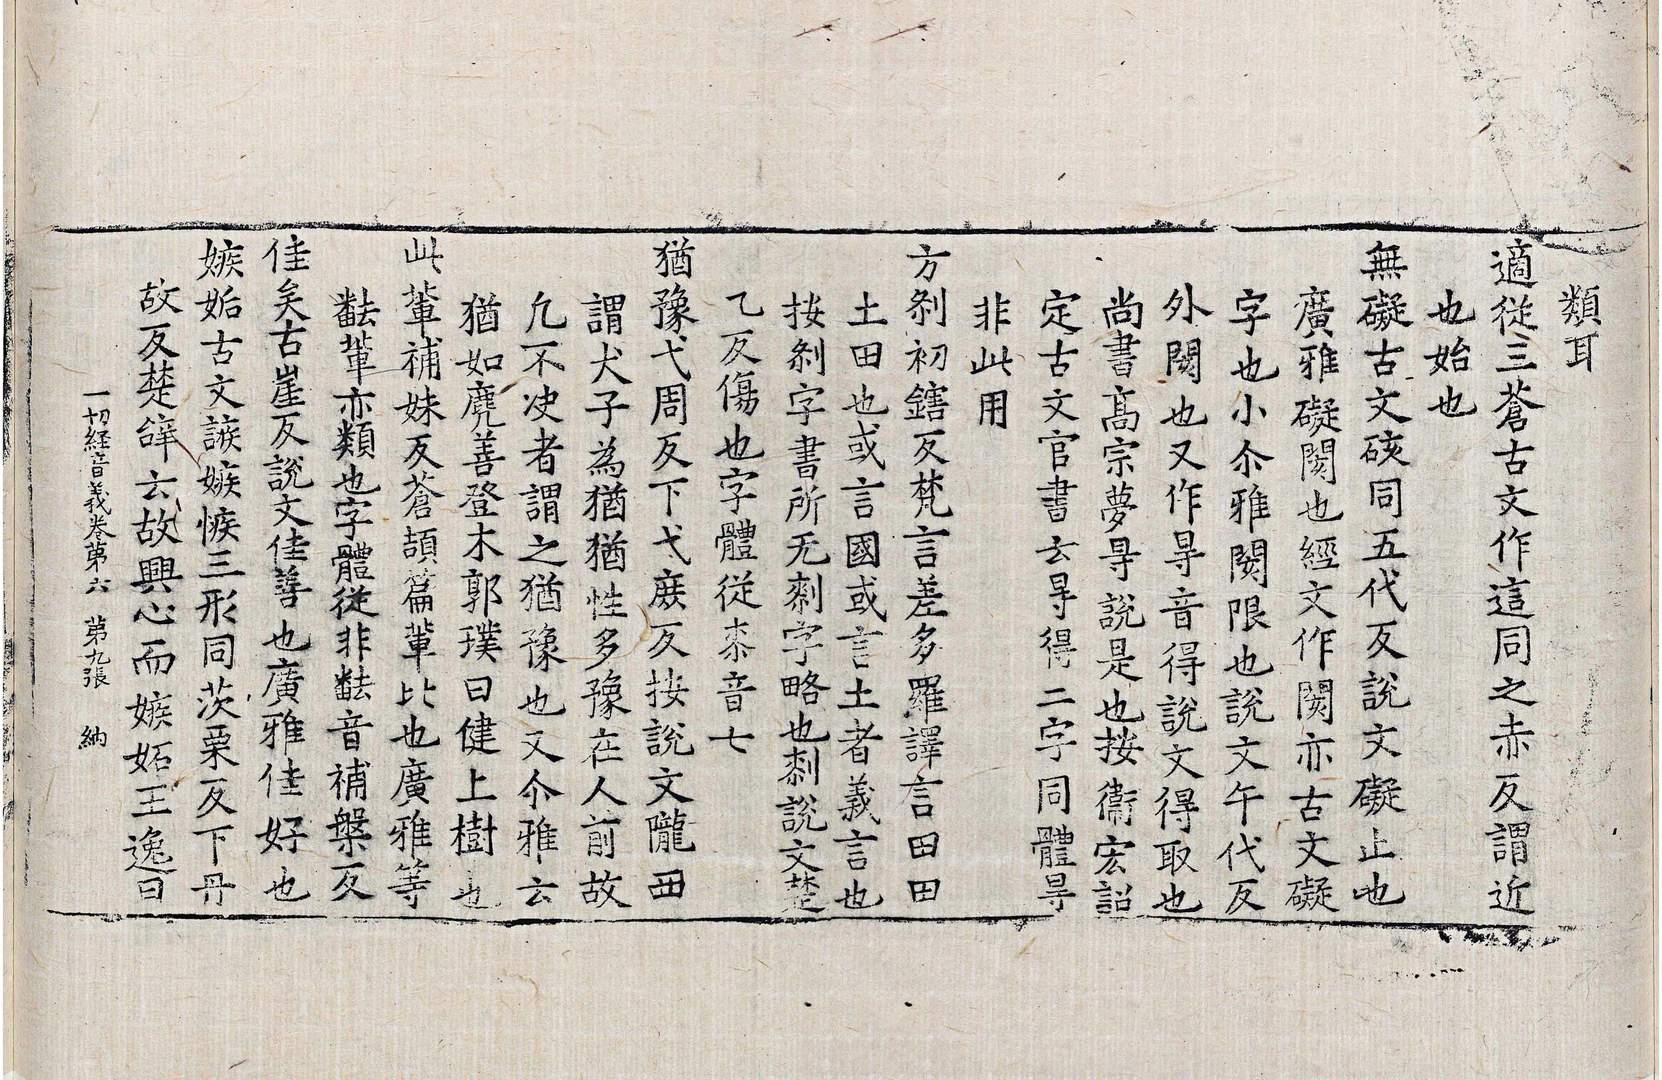 類耳
適從三蒼古文作這同之赤反謂近
也始也
無礙古文硋同五代反說文礙止也
廣雅礙閡也經文作閡亦古文礙
字也小尒雅閡限也說文午代反
外閉也又作㝵音得說文得取也
尚書高宗夢㝵說是也按衞宏詔
定古文官書云㝵得二字同體㝵
非此用
方剎初鎋反梵言差多羅譯言田田
土田也或言國或言土者義言也
按剎字書所无剌字略也剌說文楚
乙反傷也字體從桼音七
猶豫弋周反下弋庶反按說文隴西
謂犬子為猶猶性多豫在人前故
凢不决者謂之猶豫也又尒雅云
猶如麂善登木郭璞曰健上樹也
此輩補妹反蒼頡篇輩比也廣雅等
𪓟輩亦類也字體從非𪓟音補槃反
佳矣古崖反說文佳善也廣雅佳好也
嫉妬古文䛢嫉㑵三形同茨栗反下丹
故反楚辝云故興心而嫉妬王逸曰
一切経音義卷第六　第九張　納